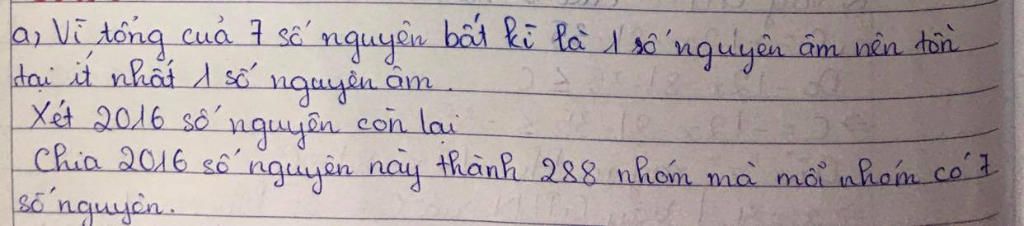 a, Vì tổng của 7 số nguyên bất kì là 1 số nguyên âm nên tồn
tại ít nhất 1 số nguyên âm.
Xét 2016 số nguyên còn lại
Chia 2016 số nguyên này thành 288 nhóm mà mỗi nhóm có 7
số nguyên.